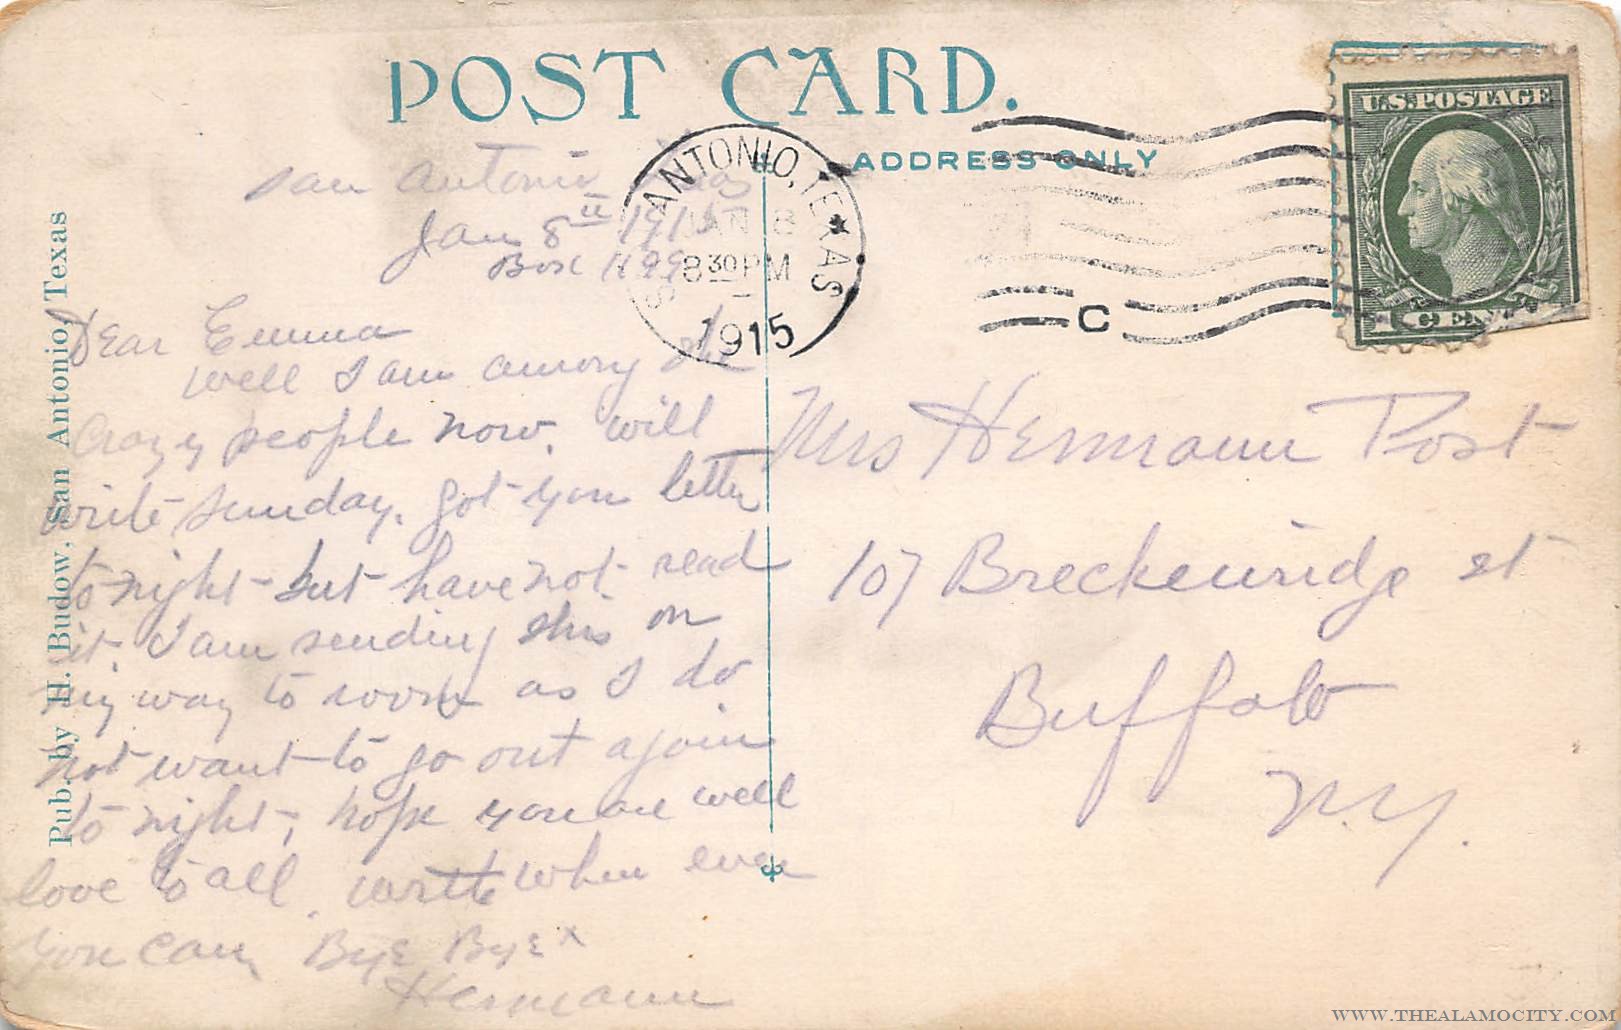 POST CARD.
ADDRESS ONLY
U.S. POSTAGE
1 CEN
SAN ANTONIO, TEXAS
JAN 8
8 30 PM
1915
C
Pub. by H. Budow, San Antonio, Texas
San Antonio Texas
Jan 8th 1915
Box 1199
Dear Emma
Well I am among the
Crazy people now. will
write Sunday. got you letter
to night but have not read
it. I am sending this on
my way to room as I do
not want to go out again
to night, hope you are well
love to all. write when ever
you can. Bye Bye x
Hermann
Mrs Hermann Post
107 Breckenridge st
Buffalo
N.Y.
WWW.THEALAMOCITY.COM